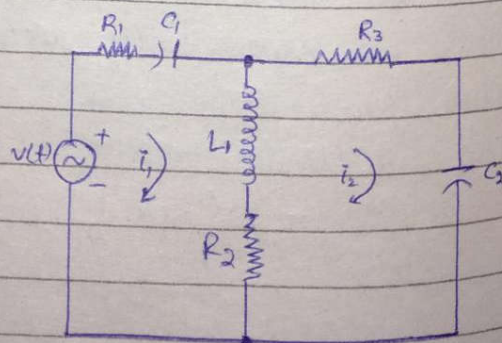 R1 C1 R3
v(t) + i1 L1 i2 C2
-
R2